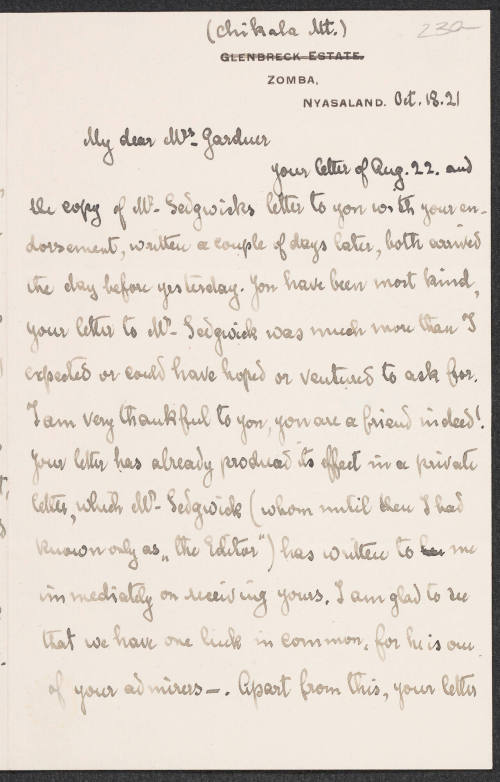 (Chikala Mt.)
230
GLENBRECK ESTATE.
ZOMBA,
NYASALAND. Oct. 18. 21
My dear Mrs. Gardner
your letter of Aug. 22. and
the copy of Mr. Sedgwicks letter to you with your en-
dorsement, written a couple of days later, both arrived
the day before yesterday. You have been most kind,
your letter to Mr. Sedgwick was much more than I
expected or could have hoped or ventured to ask for.
I am very thankful to you, you are a friend indeed!
Your letter has already produced its effect in a private
letter, which Mr. Sedgwick (whom until then I had
known only as „the Editor") has written to me
immediately on receiving yours. I am glad to see
that we have one link in common, for he is one
of your admirers —. Apart from this, your letter